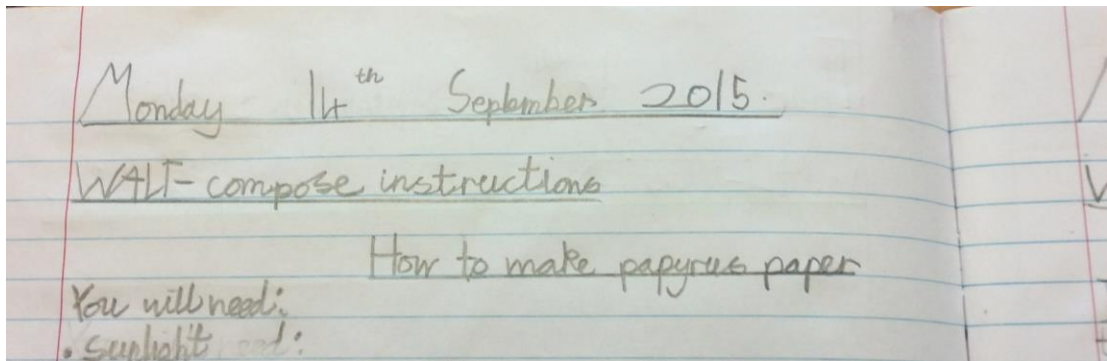 Monday 14th September 2015.
WALT- compose instructions
How to make papyrus paper
You will need:
• Sunlight